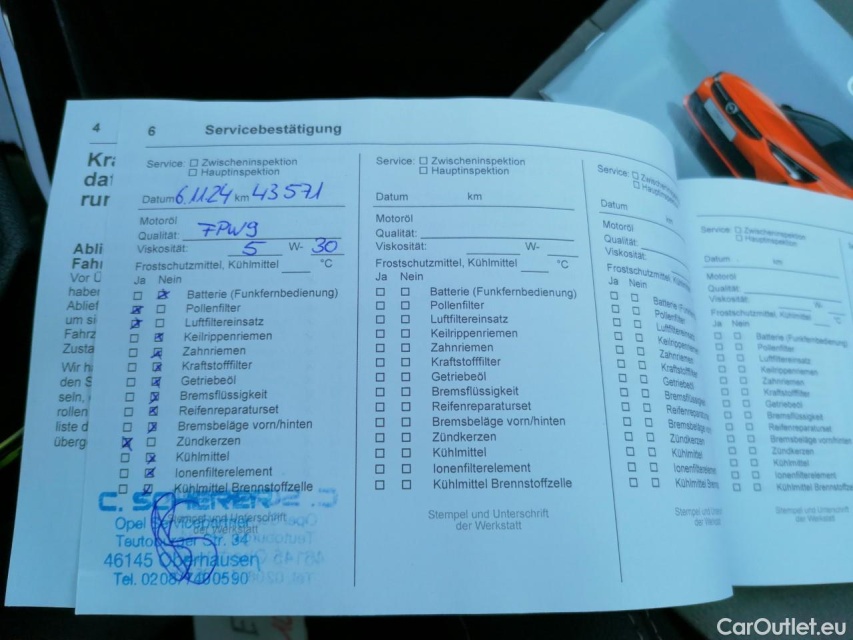 4
Kra
dat
run
Abli
Fahr
Vor Ü
haben
Ablief
um si
Fahrz
Zusta
Wir h
den S
sein,
rollen
liste d
überg
6 Servicebestätigung
Service: ☐ Zwischeninspektion
☐ Hauptinspektion
Datum 6.11.24 km 43571
Motoröl
Qualität: FPW9
Viskosität: 5 W- 30
Frostschutzmittel, Kühlmittel ____ °C
Ja Nein
☐ ☒ Batterie (Funkfernbedienung)
☒ ☐ Pollenfilter
☒ ☐ Luftfiltereinsatz
☐ ☒ Keilrippenriemen
☐ ☒ Zahnriemen
☐ ☒ Kraftstofffilter
☐ ☒ Getriebeöl
☐ ☒ Bremsflüssigkeit
☐ ☒ Reifenreparaturset
☐ ☒ Bremsbeläge vorn/hinten
☒ ☐ Zündkerzen
☐ ☒ Kühlmittel
☐ ☒ Ionenfilterelement
☐ ☒ Kühlmittel Brennstoffzelle
C. SCHERER
Stempel und Unterschrift
der Werkstatt
Opel Servicepartner
Teutoburger Str. 34
46145 Oberhausen
Tel. 0208/7400590
Service: ☐ Zwischeninspektion
☐ Hauptinspektion
Datum km
Motoröl
Qualität:
Viskosität: W-
Frostschutzmittel, Kühlmittel ____ °C
Ja Nein
☐ ☐ Batterie (Funkfernbedienung)
☐ ☐ Pollenfilter
☐ ☐ Luftfiltereinsatz
☐ ☐ Keilrippenriemen
☐ ☐ Zahnriemen
☐ ☐ Kraftstofffilter
☐ ☐ Getriebeöl
☐ ☐ Bremsflüssigkeit
☐ ☐ Reifenreparaturset
☐ ☐ Bremsbeläge vorn/hinten
☐ ☐ Zündkerzen
☐ ☐ Kühlmittel
☐ ☐ Ionenfilterelement
☐ ☐ Kühlmittel Brennstoffzelle
Stempel und Unterschrift
der Werkstatt
Service: ☐ Zwischenins
☐ Hauptinspekti
Datum km
Motoröl
Qualität:
Viskosität:
Frostschutzmittel, Kühlm
Ja Nein
☐ ☐ Batterie (Funkf
☐ ☐ Pollenfilter
☐ ☐ Luftfilterein
☐ ☐ Keilrippenri
☐ ☐ Zahnriemen
☐ ☐ Kraftstofffil
☐ ☐ Getriebeöl
☐ ☐ Bremsflüssi
☐ ☐ Reifenrepara
☐ ☐ Bremsbeläg
☐ ☐ Zündkerzen
☐ ☐ Kühlmittel
☐ ☐ Ionenfilterelem
☐ ☐ Kühlmittel Bren
Stempel und Unt
der Werkst
Service: ☐ Zwischeninspektion
☐ Hauptinspektion
Datum km
Motoröl
Qualität:
Viskosität: W-
Frostschutzmittel, Kühlmittel ____ °C
Ja Nein
☐ ☐ Batterie (Funkfernbedienung)
☐ ☐ Pollenfilter
☐ ☐ Luftfiltereinsatz
☐ ☐ Keilrippenriemen
☐ ☐ Zahnriemen
☐ ☐ Kraftstofffilter
☐ ☐ Getriebeöl
☐ ☐ Bremsflüssigkeit
☐ ☐ Reifenreparaturset
☐ ☐ Bremsbeläge vorn/hinten
☐ ☐ Zündkerzen
☐ ☐ Kühlmittel
☐ ☐ Ionenfilterelement
☐ ☐ Kühlmittel Brennstoffze
Stempel und Unterschrift
der Werkstatt
CarOutlet.eu